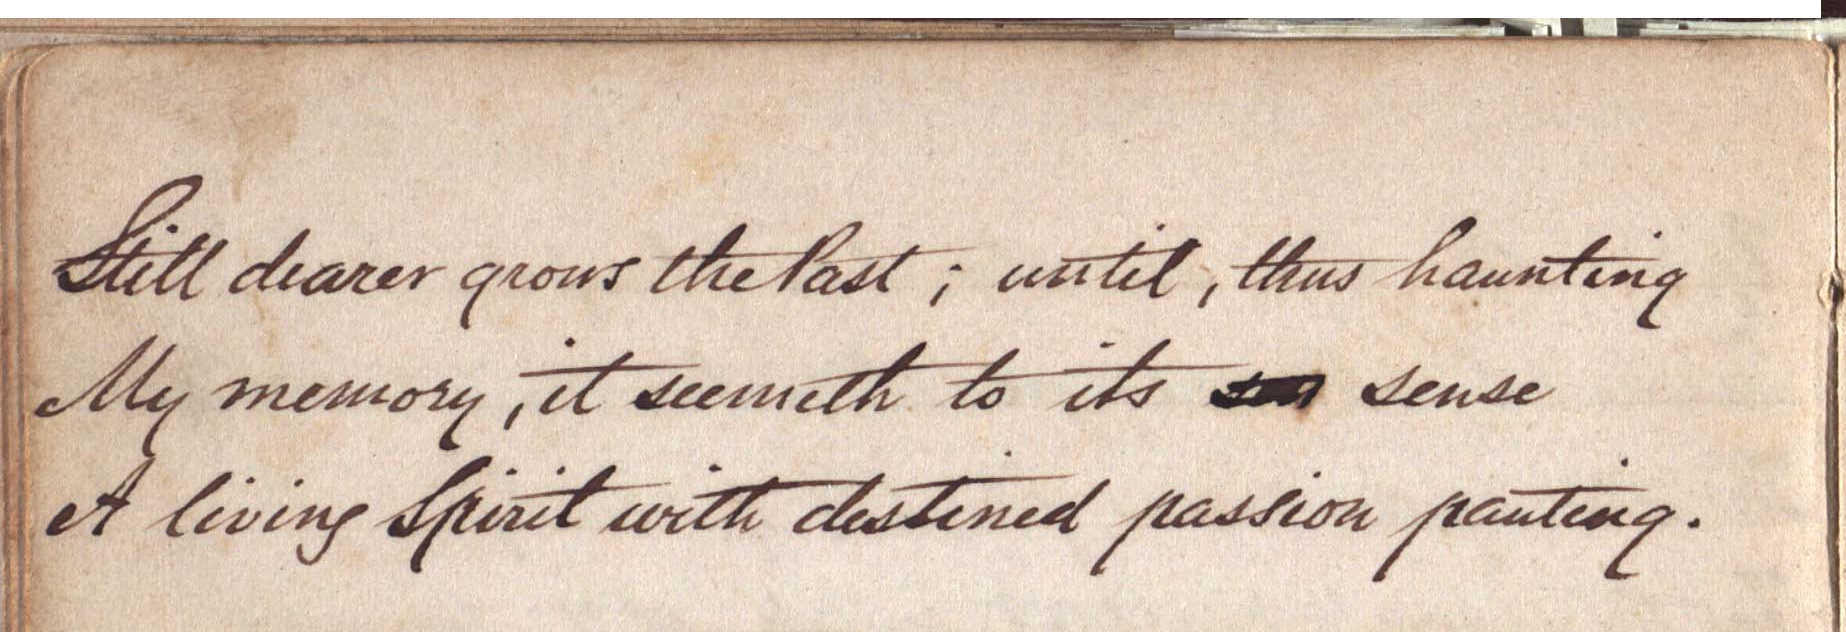 Still dearer grows the Past ; until , thus haunting
My memory , it seemeth to its sense
A living Spirit with destined passion panting .